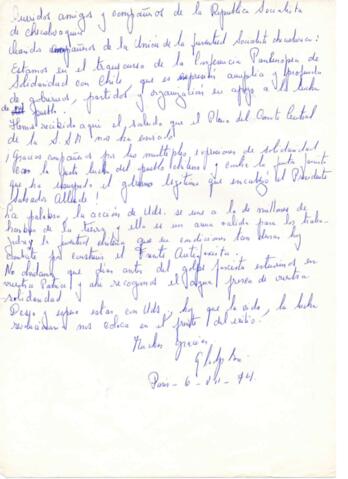 Queridos amigos y compañeros de la República Socialista
de Checoslovaquia
Queridos compañeros de la Unión de la Juventud Socialista
Estamos en el transcurso de la Conferencia Paneuropea de
Solidaridad con Chile que es expresión amplia y profunda
de gobiernos, partidos y organizaciones en apoyo a la lucha
de pueblo.
Hemos recibido aquí el saludo que el Pleno del Comité Central
de la nos ha enviado
¡Gracias compañeros por las múltiples expresiones de solidaridad
con la justa lucha del pueblo chileno y contra la junta fascista
que ha usurpado el gobierno legítimo que encabezó el Presidente
Salvador Allende!
La palabra, la acción de Uds. se une a la de millones de
hombres de la tierra y ello es un arma valiosa para los
y la juventud chilena que en condiciones tan duras hoy
combate por construir el Frente Antifascista.
No olvidamos que días antes del golpe fascista estuvimos en
vuestra Patria y allí recogimos el de vuestra
solidaridad
Deseo y espero estar con Uds. hoy que la vida, la lucha
revolucionaria nos coloca en el frente del exilio.
Muchas gracias
Gladys
Paris - 6 - 74.